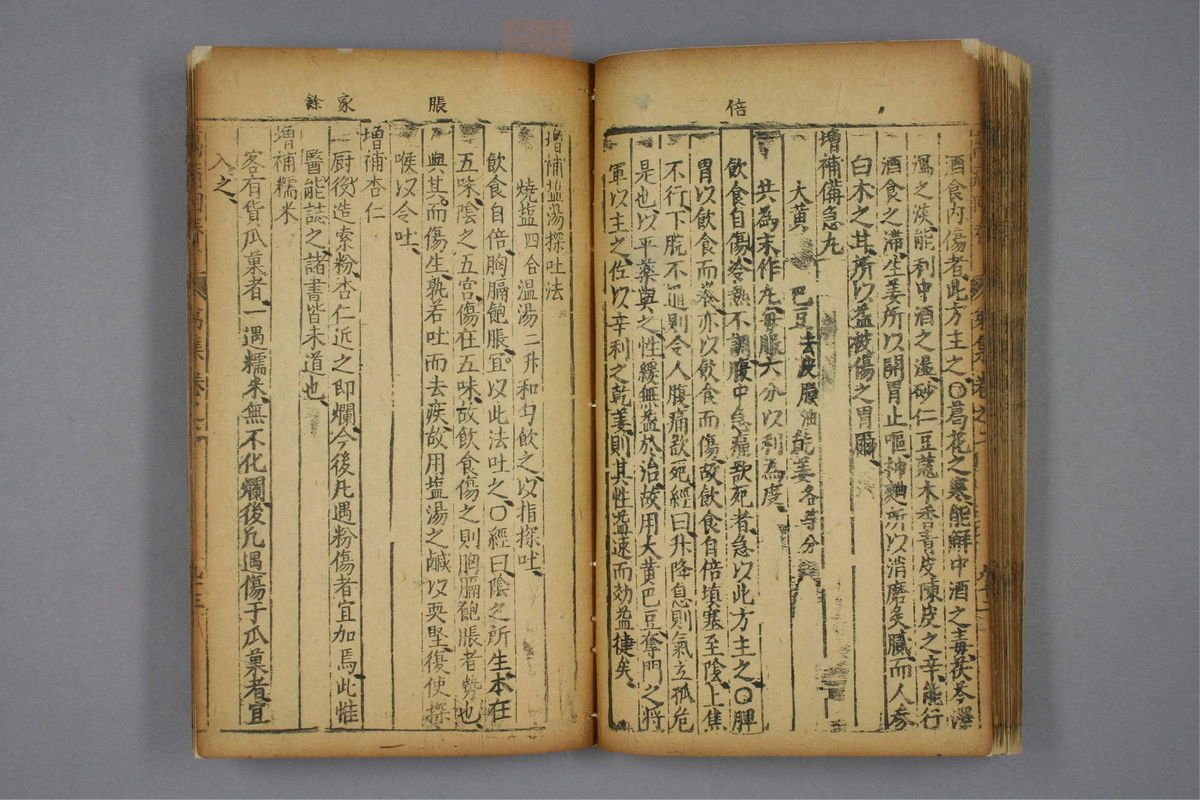 倍
酒食内傷者、此方主之、○葛花之寒、能解中酒之毒、茯苓澤
瀉之淡、能利中酒之湿、砂仁豆蔲木香青皮陳皮之辛、能行
酒食之滞、生姜所以開胃止嘔、神麯所以消磨炙膩、而人参
白术之甘、所以益被傷之胃爾、
増補備急丸
大黄 巴豆去皮膜油 乾姜各等分
共為末作丸毎服六分以利為度、
飲食自傷、冷熱不調、腹中急痛欲死者、急以此方主之、○脾
胃以飲食而養、亦以飲食而傷、故飲食自倍、填塞至陰、上焦
不行、下脘不通、則令人腹痛欲死、經曰、升降息則氣立孤危
是也、以平藥與之、性緩無益於治、故用大黄巴豆奪門之將
軍以主之、佐以辛利之乾姜、則其性益速而効益捷矣、
脹
家
餘
増補塩湯探吐法
焼塩四合温湯二升和匀飲之、以指探吐、
飲食自倍、胸膈飽脹、宜以此法吐之、○經曰、陰之所生、本在
五味、陰之五宮、傷在五味、故飲食傷之、則胸膈飽脹者、勢也、
與其而傷生、孰若吐而去疾、故用塩湯之鹹以耎堅、復使探
喉以令吐、
増補杏仁
一厨役造索粉、杏仁近之即爛、今後凡遇粉傷者宜加焉、此惟
醫能誌之、諸書皆未道也、
増補糯米
客有貨瓜菓者、一遇糯米、無不化爛、後凡遇傷于瓜菓者、宜
入之、